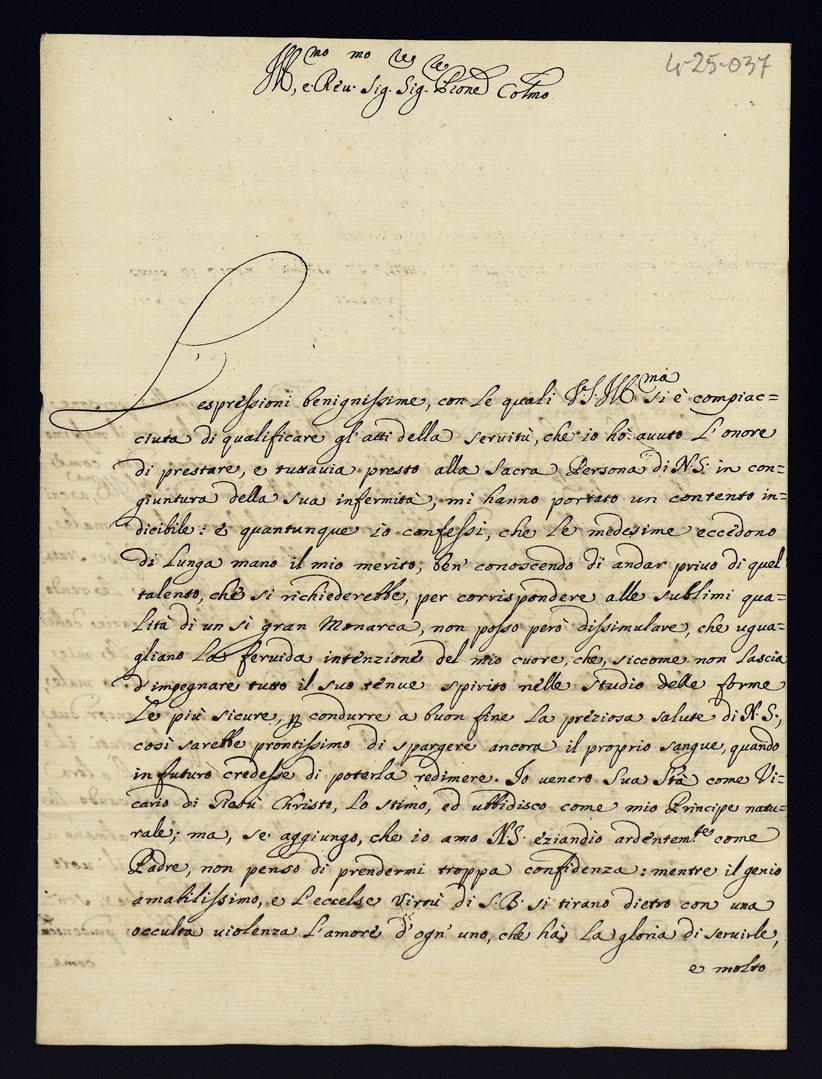 4-25-037
Ill.mo, e Reu.mo Sig.re Sig.re Pñone Colmo
L'espressioni benignissime, con le quali V.S. Ill.ma si è compiac=
ciuta di qualificare gl'atti della seruitù, che io hò auuto l'onore
di prestare, e tuttauia presto alla Sacra Persona di N.S. in con=
giuntura della sua infermità, mi hanno portato un contento in=
dicibile: e quantunque io confessi, che le medesime eccedono
di lunga mano il mio merito, ben' conoscendo di andar priuo di quel
talento, che si richiederebbe, per corrispondere alle sublimi qua=
lità di un si gran Monarca, non posso però dissimulare, che ugua=
gliano la feruida intenzione del mio cuore, che, siccome non lascia
d'impegnare tutto il suo tenue spirito nello studio delle forme
le più sicure, p condurre a buon fine la preziosa salute di N.S.,
così sarebbe prontissimo di spargere ancora il proprio sangue, quando
in futuro credesse di poterla redimere. Io venero Sua Stà come Vi=
cario di Giesù Christo, lo stimo, ed ubbidisco come mio Principe natu=
rale; ma, se aggiungo, che io amo N.S. eziandio ardentem.te come
Padre, non penso di prendermi troppa confidenza: mentre il genio
amabilissimo, e l'eccelse Virtù di S.B. si tirano dietro con una
occulta uiolenza l'amore d'ogn' uno, che hà la gloria di seruirle,
e molto